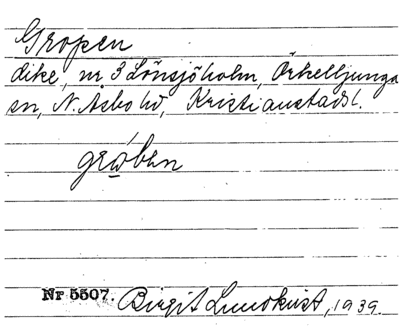 Gropen
dike, nr 3 Lönsjöholm, Örkelljunga
sn, N. Åsbo hd, Kristianstads l.
grώ̱ben
Nr 5507. Birgit Lundkvist, 1939.